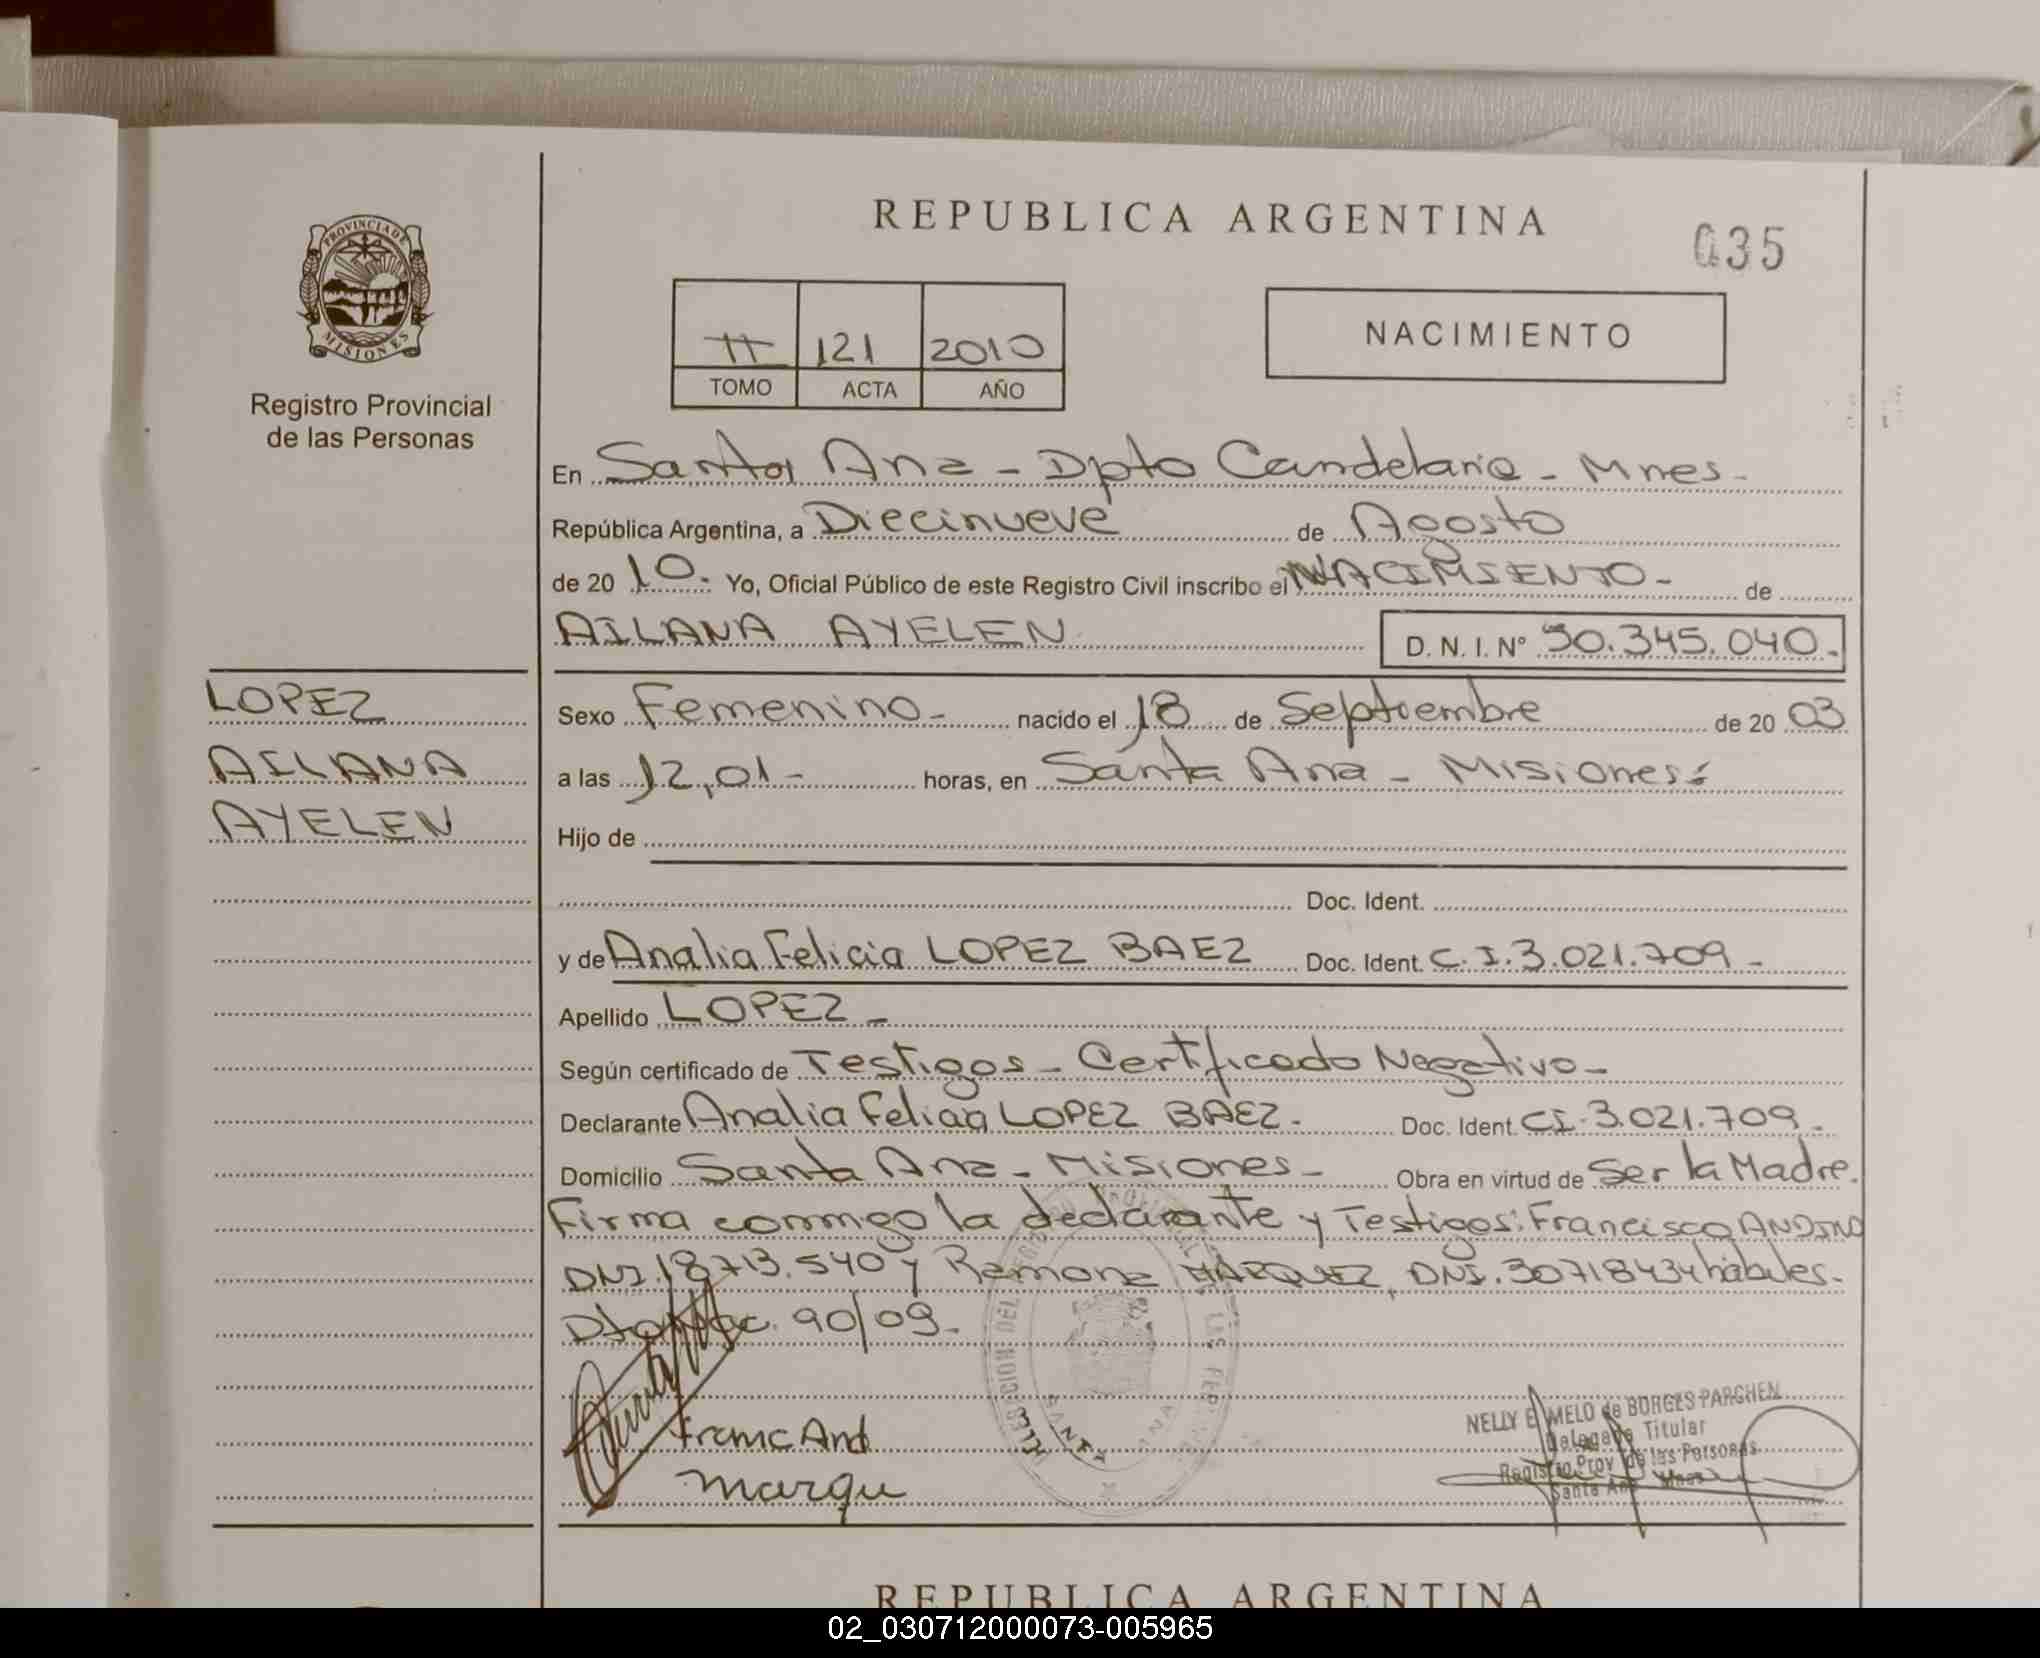 PROVINCIA DE
MISIONES
Registro Provincial
de las Personas
LOPEZ
AILANA
AYELEN
REPUBLICA ARGENTINA
035
II 121 2010
TOMO ACTA AÑO
NACIMIENTO
En Santa Ana - Dpto Candelaria - Mnes -
República Argentina, a Diecinueve de Agosto
de 20 10. Yo, Oficial Público de este Registro Civil inscribo el NACIMIENTO - de
AILANA AYELEN D. N. I. Nº 50.345.040.
Sexo Femenino - nacido el 18 de Septiembre de 20 03
a las 12,01 - horas, en Santa Ana - Misiones
Hijo de
Doc. Ident.
y de Analia Felicia LOPEZ BAEZ Doc. Ident. C.I.3.021.709 -
Apellido LOPEZ -
Según certificado de Testigos - Certificado Negativo -
Declarante Analia Felicia LOPEZ BAEZ - Doc. Ident. CI.3.021.709.
Domicilio Santa Ana - Misiones - Obra en virtud de Ser la Madre.
Firma conmigo la declarante y Testigos: Francisco ANDINO
DNI.18713.540 y Ramona MARQUEZ, DNI.30718434 hábiles.
90/09.
Franc And
Marqu
SANTA ANA
NELLY E. MELO de BORGES PARCHEN
Delegada Titular
Registro Prov. de las Personas
Santa Ana Mnes
REPUBLICA ARGENTINA
02_030712000073-005965